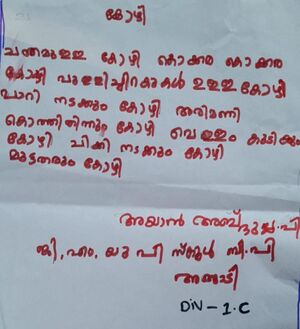 കോഴി
ചന്തമുള്ള കോഴി കൊക്കര കൊക്കര
കോഴി പുള്ളിച്ചിറകുകൾ ഉള്ള കോഴി
പാറി നടക്കും കോഴി അരിമണി
കൊത്തിതിന്നും കോഴി വെള്ളം കുടിക്കും
കോഴി ചിക്കി നടക്കും കോഴി
മുട്ടതരും കോഴി
അയാൻ അബ്ദുല്ല.പി
ജി,എം,യു പി സ്കൂൾ ബി.പി
അങ്ങാടി
DIV - 1.C